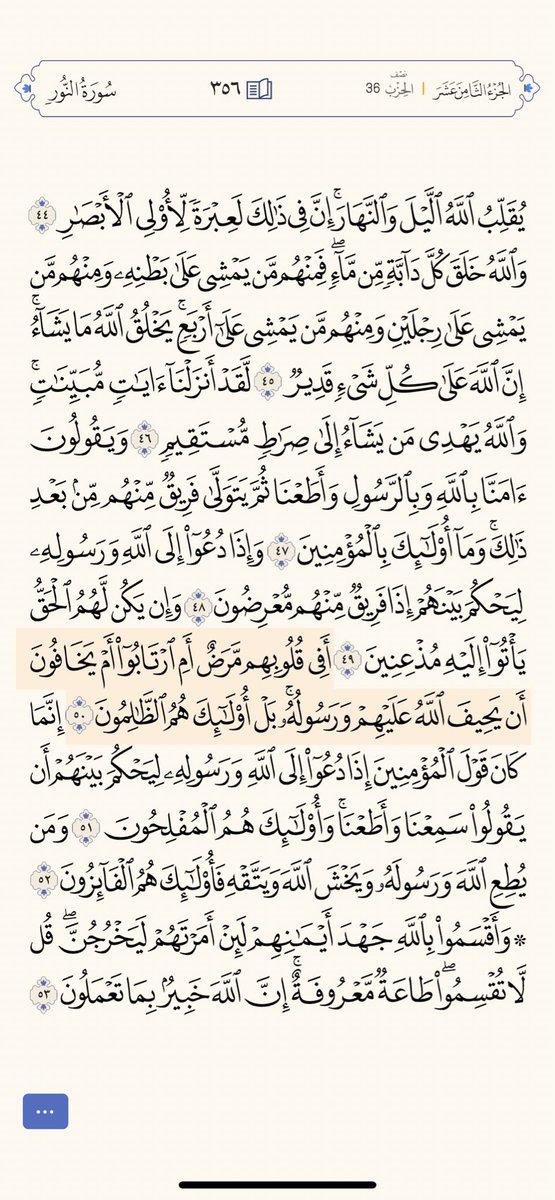 سُورَةُ النُّورِ ٣٥٦ نصف الحِزْبُ 36 | الجُزْءُ الثَّامِنَ عَشَرَ
يُقَلِّبُ ٱللَّهُ ٱلَّيْلَ وَٱلنَّهَارَۚ إِنَّ فِى ذَٰلِكَ لَعِبْرَةً لِّأُو۟لِى ٱلْأَبْصَٰرِ ٤٤
وَٱللَّهُ خَلَقَ كُلَّ دَآبَّةٍ مِّن مَّآءٍۖ فَمِنْهُم مَّن يَمْشِى عَلَىٰ بَطْنِهِۦ وَمِنْهُم مَّن
يَمْشِى عَلَىٰ رِجْلَيْنِ وَمِنْهُم مَّن يَمْشِى عَلَىٰٓ أَرْبَعٍۚ يَخْلُقُ ٱللَّهُ مَا يَشَآءُۚ
إِنَّ ٱللَّهَ عَلَىٰ كُلِّ شَىْءٍ قَدِيرٌ ٤٥ لَّقَدْ أَنزَلْنَآ ءَايَٰتٍ مُّبَيِّنَٰتٍۚ
وَٱللَّهُ يَهْدِى مَن يَشَآءُ إِلَىٰ صِرَٰطٍ مُّسْتَقِيمٍ ٤٦ وَيَقُولُونَ
ءَامَنَّا بِٱللَّهِ وَبِٱلرَّسُولِ وَأَطَعْنَا ثُمَّ يَتَوَلَّىٰ فَرِيقٌ مِّنْهُم مِّنۢ بَعْدِ
ذَٰلِكَۚ وَمَآ أُو۟لَٰٓئِكَ بِٱلْمُؤْمِنِينَ ٤٧ وَإِذَا دُعُوٓا۟ إِلَى ٱللَّهِ وَرَسُولِهِۦ
لِيَحْكُمَ بَيْنَهُمْ إِذَا فَرِيقٌ مِّنْهُم مُّعْرِضُونَ ٤٨ وَإِن يَكُن لَّهُمُ ٱلْحَقُّ
يَأْتُوٓا۟ إِلَيْهِ مُذْعِنِينَ ٤٩ أَفِى قُلُوبِهِم مَّرَضٌ أَمِ ٱرْتَابُوٓا۟ أَمْ يَخَافُونَ
أَن يَحِيفَ ٱللَّهُ عَلَيْهِمْ وَرَسُولُهُۥۚ بَلْ أُو۟لَٰٓئِكَ هُمُ ٱلظَّٰلِمُونَ ٥٠ إِنَّمَا
كَانَ قَوْلَ ٱلْمُؤْمِنِينَ إِذَا دُعُوٓا۟ إِلَى ٱللَّهِ وَرَسُولِهِۦ لِيَحْكُمَ بَيْنَهُمْ أَن
يَقُولُوا۟ سَمِعْنَا وَأَطَعْنَاۚ وَأُو۟لَٰٓئِكَ هُمُ ٱلْمُفْلِحُونَ ٥١ وَمَن
يُطِعِ ٱللَّهَ وَرَسُولَهُۥ وَيَخْشَ ٱللَّهَ وَيَتَّقْهِ فَأُو۟لَٰٓئِكَ هُمُ ٱلْفَآئِزُونَ ٥٢
* وَأَقْسَمُوا۟ بِٱللَّهِ جَهْدَ أَيْمَٰنِهِمْ لَئِنْ أَمَرْتَهُمْ لَيَخْرُجُنَّۖ قُل
لَّا تُقْسِمُوا۟ۖ طَاعَةٌ مَّعْرُوفَةٌۚ إِنَّ ٱللَّهَ خَبِيرٌۢ بِمَا تَعْمَلُونَ ٥٣